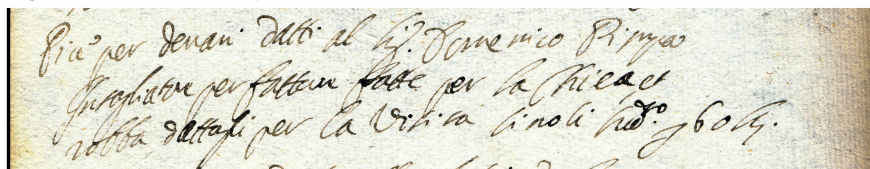 Più per denari datti al Sig. Domenico Pippo
Intagliatore per fatture fatte per la Chiesa et
robba dattagli per la Visita sin oli